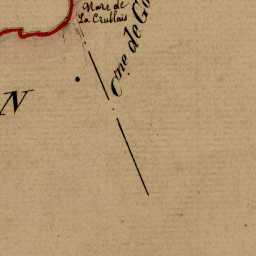 Mare de
La Crublais
Cne de G
N